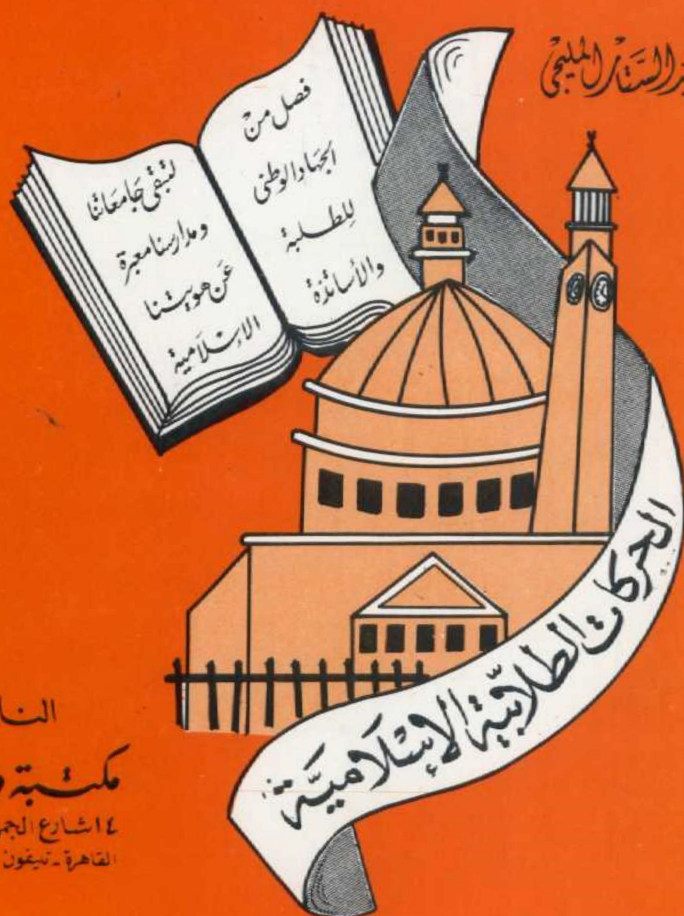 السَّتَّار المليجى
فصل من
الجهاد الوطنى
للطلبة
والأساتذة
لتبقى جامعاتنا
ومدارسنا معبرة
عن هويتنا
الإسلامية
الحركات الطلابية الإسلامية
مكتبة
١٤ شارع
القاهرة - تليفون